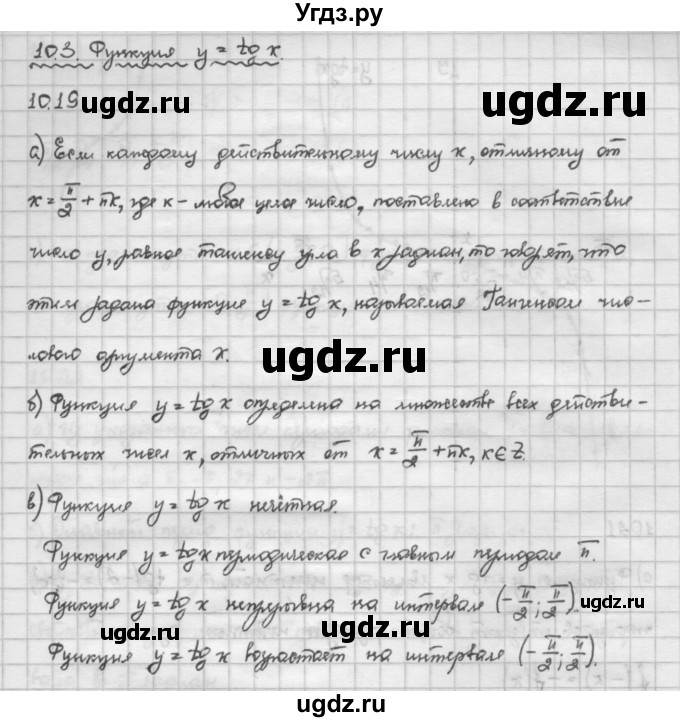 Угдз.ру
10.3. Функция y = tg x.
10.19
а) Если каждому действительному числу x, отличному от
x = π/2 + πk, где k - любое целое число, поставлено в соответствие
число y, равное тангенсу угла в x радиан, то говорят, что
этим задана функция y = tg x, называемая Тангенсом чис-
лового аргумента x.
б) Функция y = tg x определена на множестве всех действи-
тельных чисел x, отличных от x = π/2 + πk, k ∈ Z.
в) Функция y = tg x нечётная.
Функция y = tg x периодическая с главным периодом π.
Функция y = tg x непрерывна на интервале (-π/2; π/2).
Функция y = tg x возрастает на интервале (-π/2; π/2).
ugdz.ru
ugdz.ru
ugdz.ru
ugdz.ru
ugdz.ru
ugdz.ru
ugdz.ru
ugdz.ru
ugdz.ru
ugdz.ru
ugdz.ru